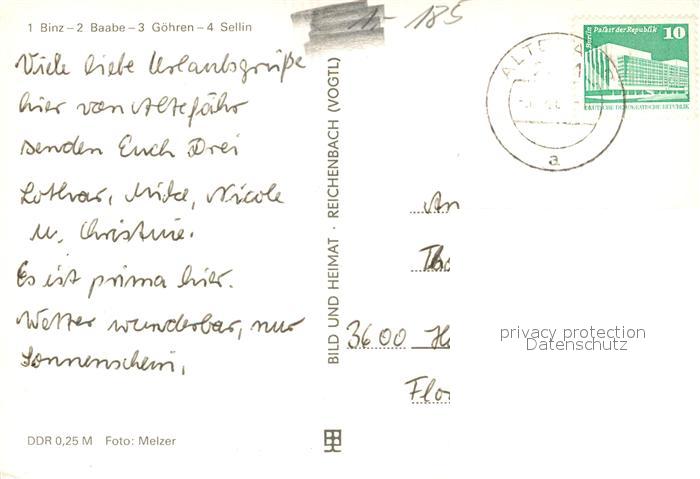 1 Binz – 2 Baabe – 3 Göhren – 4 Sellin
Viele liebe Urlaubsgrüße
hier von Altefähr
senden Euch Drei
Lothar, Mike, Nicole
u. Christine.
Es ist prima hier.
Wetter wunderbar, nur
Sonnenschein,
DDR 0,25 M Foto: Melzer
BILD UND HEIMAT · REICHENBACH (VOGTL)
1,- 185
Berlin Palast der Republik 10
DEUTSCHE DEMOKRATISCHE REPUBLIK
a
An
3600 H
Flo
privacy protection
Datenschutz